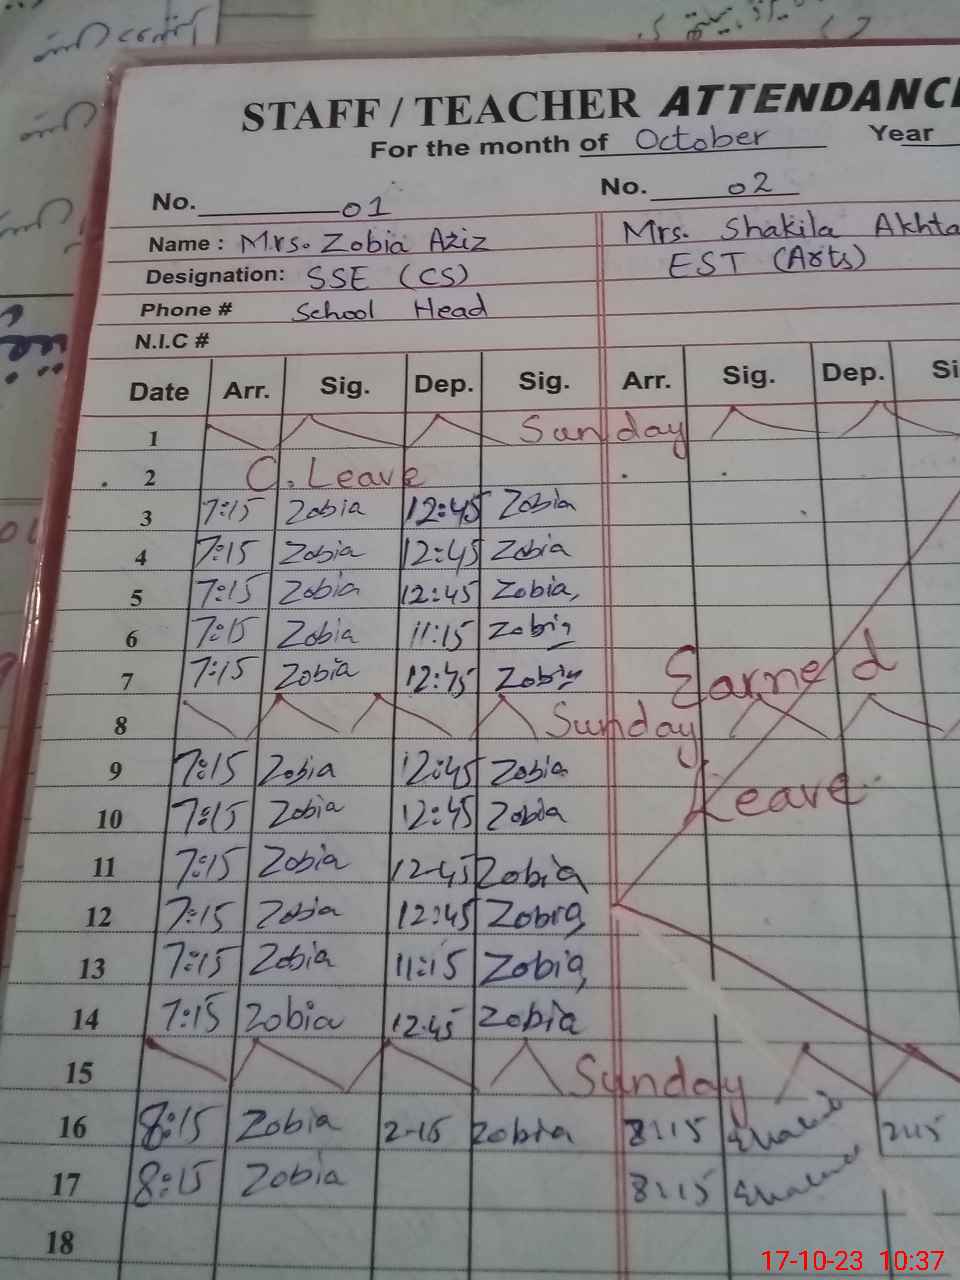 STAFF / TEACHER ATTENDANC
For the month of October Year
No. 01 No. 02
Name : Mrs. Zobia Aziz Mrs. Shakila Akhta
Designation: SSE (CS) EST (Arts)
Phone # School Head
N.I.C #
Date Arr. Sig. Dep. Sig. Arr. Sig. Dep. Si
1 Sunday
2 C. Leave
3 7:15 Zobia 12:45 Zobia
4 7:15 Zobia 12:45 Zobia
5 7:15 Zobia 12:45 Zobia,
6 7:15 Zobia 11:15 Zobia
7 7:15 Zobia 12:45 Zobia
Earned
8 Sunday
9 7:15 Zobia 12:45 Zobia
Leave
10 7:15 Zobia 12:45 Zobia
11 7:15 Zobia 12-45 Zobia
12 7:15 Zobia 12:45 Zobia
13 7:15 Zobia 11:15 Zobia
14 7:15 Zobia 12.45 Zobia
15 Sunday
16 8:15 Zobia 2-15 Zobia 8:15 2:15
17 8:15 Zobia 8:15
18
17-10-23 10:37